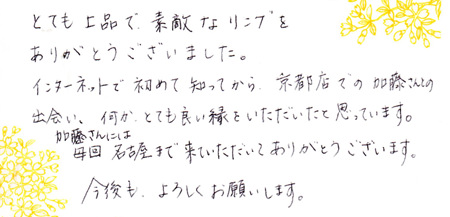 とても上品で、素敵なリングを
ありがとうございました。
インターネットで初めて知ってから、京都店での加藤さんとの
出会い、何か、とても良い縁をいただいたと思っています。
加藤さんには
毎回名古屋まで来ていただいてありがとうございます。
今後も、よろしくお願いします。